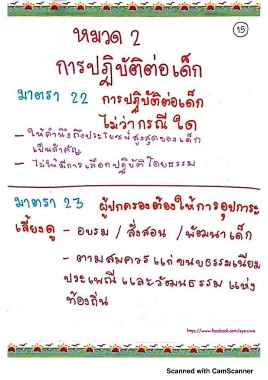 15
หมวด 2
การปฏิบัติต่อเด็ก
มาตรา 22 การปฏิบัติต่อเด็ก
ไม่ว่ากรณีใด
- ให้คำนึงถึงประโยชน์สูงสุดของเด็ก
เป็นสำคัญ
- ไม่ให้มีการเลือกปฏิบัติโดยธรรม
มาตรา 23 ผู้ปกครองต้องให้การอุปการะ
เลี้ยงดู - อบรม / สั่งสอน / พัฒนาเด็ก
- ตามสมควรแก่ขนบธรรมเนียม
ประเพณี และวัฒนธรรม แห่ง
ท้องถิ่น
https://www.facebook.com/aye.siwa
Scanned with CamScanner